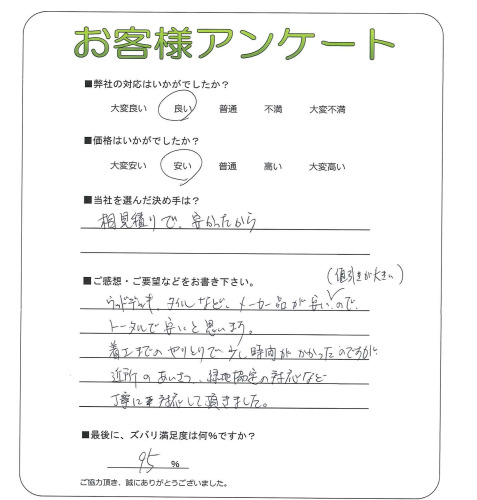 お客様アンケート
■弊社の対応はいかがでしたか？
大変良い 良い 普通 不満 大変不満
■価格はいかがでしたか？
大変安い 安い 普通 高い 大変高い
■当社を選んだ決め手は？
相見積りで、安かったから
■ご感想・ご要望などをお書き下さい。
(値引きが大きい)
ウッドデッキ、タイルなど、メーカー品が安いので、
トータルで安いと思います。
着工までのやりとりで少し時間がかかったのですが、
近所のあいさつ、緑地協定の対応など
丁寧に対応して頂きました。
■最後に、ズバリ満足度は何%ですか？
95 %
ご協力頂き、誠にありがとうございました。